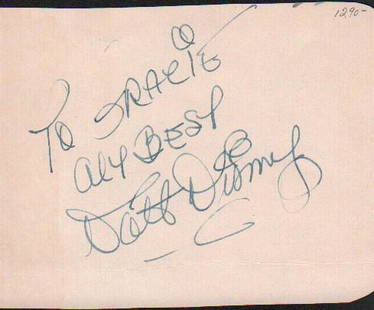 1290-
TO GRACIE
ALL BEST
Walt Disney